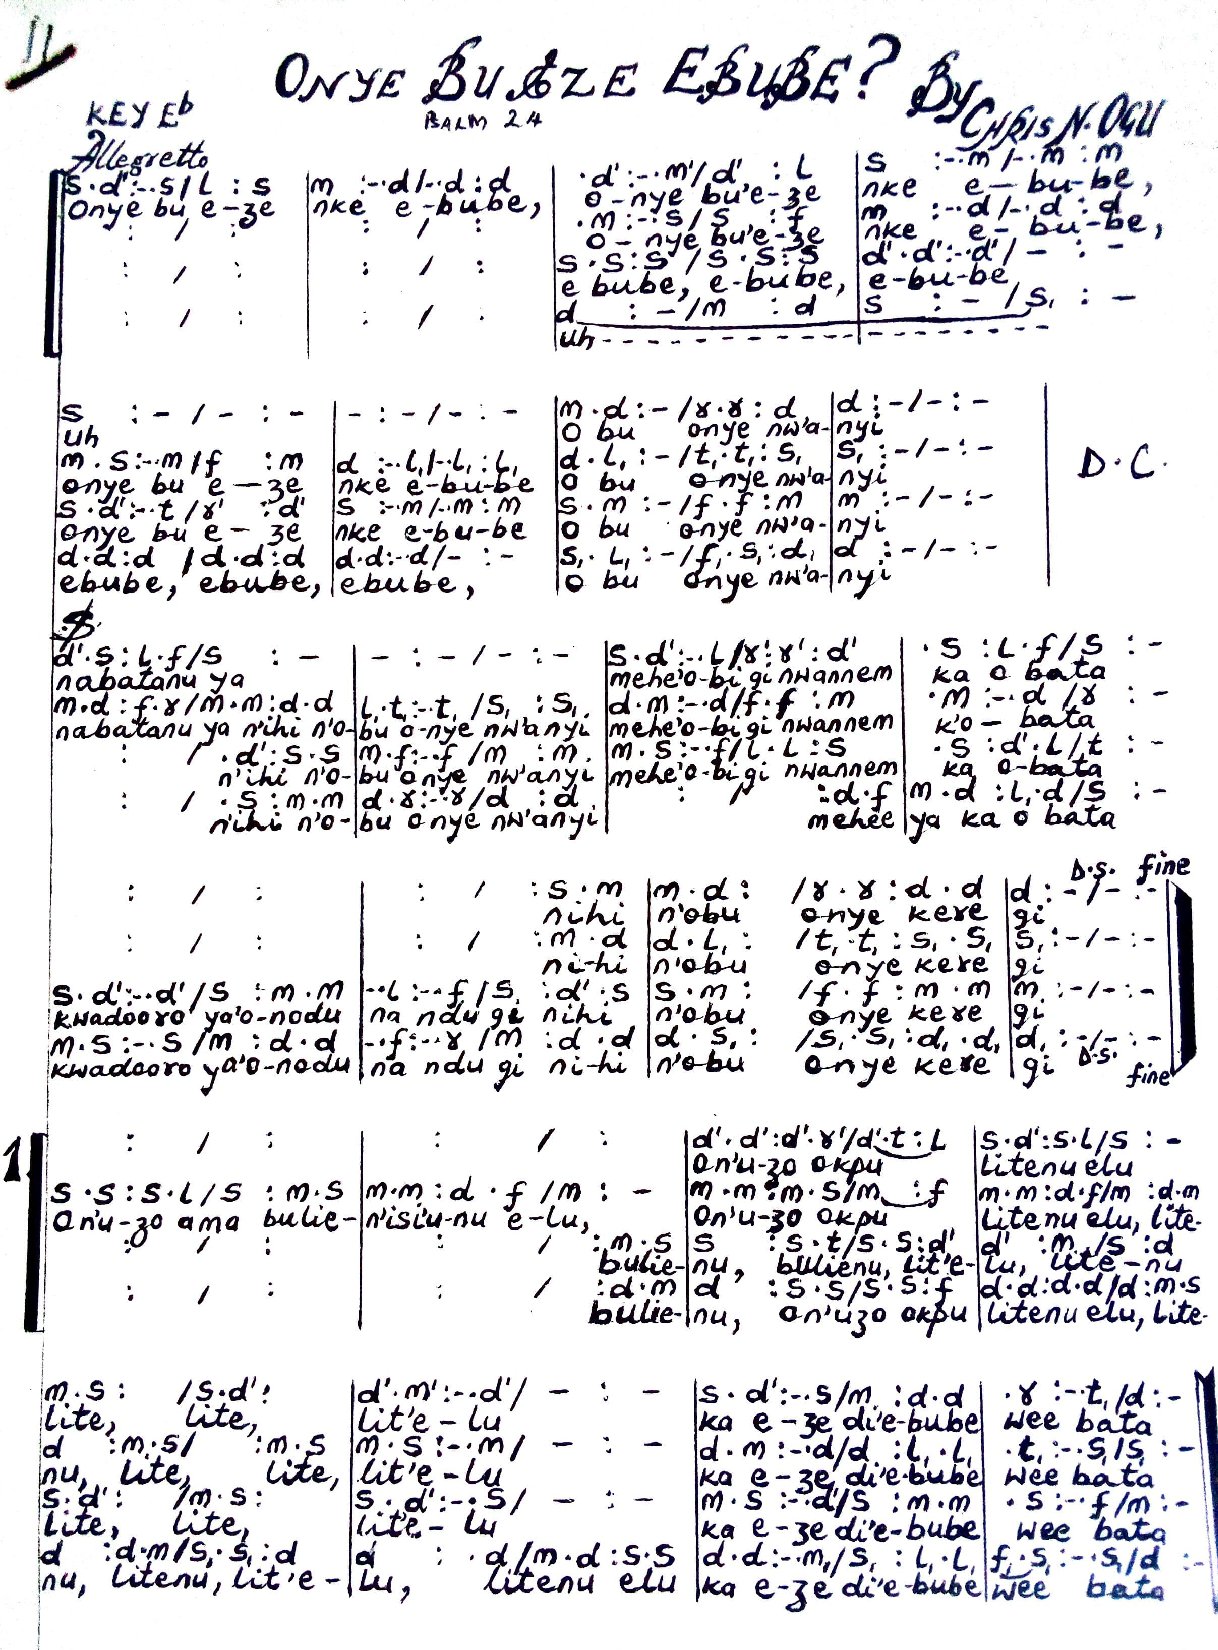 11
ONYE BU EZE EBUBE? By CHRIS N. OGU
PSALM 24
KEY Eb
Allegretto
s.d':-.s/l : s | m :-.d/-.d:d | .d':-.m'/d' : l | s :-.m/-.m : m
Onye bu e-ze | nke e-bube, | o-nye bu'e-ze | nke e-bu-be,
: / : | : / : | .m:-.s/s : f | m :-.d/-.d : d
o-nye bu'e-ze | nke e-bu-be,
: / : | : / : | s.s:s/s.s:s | d'.d':-.d'/- : -
e bube, e-bube, | e-bu-be
: / : | : / : | d : -/m : d | s : -/s, : -
uh
s : - / - : - | - : - / - : - | m.d:-/r.r:d | d:-/-:-
uh | O bu onye nw'a-|nyi
m.s:-.m/f :m | d :-.l,/-.l,:l, | d.l,:-/t,.t,:s, | s,:-/-:- D.C.
onye bu e-ze | nke e-bu-be | O bu onye nw'a-|nyi
s.d':-.t/r' :d' | s :-.m/-.m:m | s.m:-/f.f:m | m:-/-:-
onye bu e-ze | nke e-bu-be | O bu onye nw'a-|nyi
d.d:d /d.d:d | d.d:-.d/- :- | s,.l,:-/f,.s,:d, | d :-/-:-
ebube, ebube, | ebube, | o bu onye nw'a-|nyi
d'.s:l.f/s : - | - : - / - : - | s.d':-.l/r'.r':d' | .s:l.f/s : -
nabatanu ya | mehe'o-bi gi nwannem | ka o bata
m.d:f.r/m.m:d.d | l,.t,:-.t,/s, :s, | d.m:-.d/f.f:m | .m:-.d/r : -
nabatanu ya n'ihi n'o-|bu o-nye nw'anyi | mehe'o-bi gi nwannem | k'o-bata
: / .d':s.s | m.f:-.f/m :m | m.s:-.f/l.l:s | .s:d'.l/t : -
n'ihi n'o-|bu onye nw'anyi | mehe'o-bi gi nwannem | ka o-bata
: / .s:m.m | d.r:-.r/d :d | : / :d.f | m.d:l,.d/s : -
n'ihi n'o-|bu onye nw'anyi | mehee | ya ka o bata
D.S. fine
: / : | : / :s.m | m.d: /r.r:d.d | d:-/-:-
nihi | n'obu onye kere | gi
: / : | : / :m.d | d.l,: /t,.t,:s,.s, | s,:-/-:-
ni-hi | n'obu onye kere | gi
s.d':-.d'/s :m.m | -.l:-.f/s :d'.s | s.m: /f.f:m.m | m:-/-:-
kwadooro ya'o-nodu | na ndu gi nihi | n'obu onye kere | gi
m.s:-.s/m :d.d | -.f:-.r/m :d.d | d.s,: /s,.s,:d,.d, | d,:-/-:-
kwadooro ya'o-nodu | na ndu gi ni-hi | n'obu onye kere | gi D.S. fine
1
: / : | : / : | d'.d':d'.r'/d'.t:l | s.d':s.l/s : -
On'u-zo okpu | litenu elu
s.s:s.l/s :m.s | m.m:d.f/m : - | m.m:m.s/m :f | m.m:d.f/m :d.m
On'u-zo ama bulie-|n'isi'u-nu e-lu, | On'u-zo okpu | litenu elu, lite-
: / : | : / :m.s | s :s.t/s.s:d' | d' :m/s :d
bulie-|nu, bulienu, lit'e-|lu, lite-nu
: / : | : / :d.m | d :s.s/s.s:f | d.d:d.d/d:m.s
bulie-|nu, on'uzo okpu | litenu elu, lite-
m.s: /s.d': | d'.m':-.d'/- : - | s.d':-.s/m :d.d | .r:-.t,/d:-
lite, lite, | lit'e-lu | ka e-ze di'e-bube | wee bata
d :m.s/ :m.s | m.s:-.m/- : - | d.m:-.d/d :l,.l, | .t,:-.s,/s, : -
nu, lite, lite, | lit'e-lu | ka e-ze di'e-bube | wee bata
s.d': /m.s: | s.d':-.s/- : - | m.s:-.d'/s :m.m | .s:-.f/m:-
lite, lite, | lit'e-lu | ka e-ze di'e-bube | wee bata
d :d.m/s,.s,:d | d : .d/m.d:s.s | d.d:-.m,/s, :l,.l, | f,.s,:-.s,/d :-
nu, litenu, lit'e-|lu, litenu elu | ka e-ze di'e-bube | wee bata